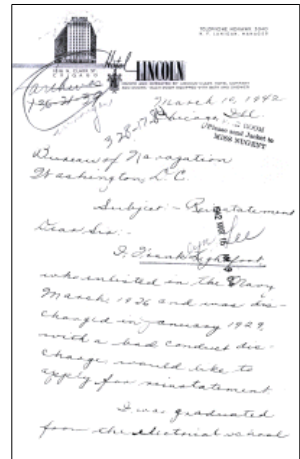 TELEPHONE MOHAWK 5040
Hotel
1816 N. CLARK ST.
CHICAGO
LINCOLN
March 10, 1942
Chicago, Ill.
Please send Jacket to
MISS NUGENT
Bureau of Navagation
Washington, D.C.
Subject - Reinstatement
Dear Sir:-
I, Frank Lightfoot
who enlisted in the Navy
March 1926 and was dis-
charged in January 1929,
with a bad conduct dis-
charge, would like to
apply for reinstatement.
I was graduated
from the electrial school